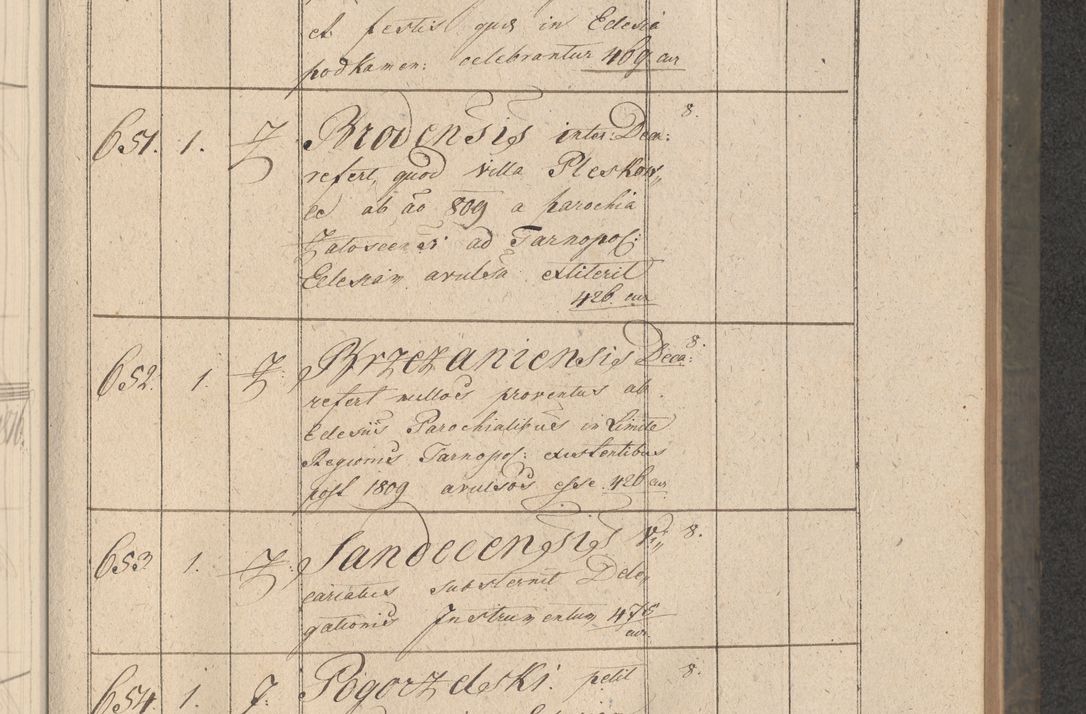 et festis quae in Eclesia
podkamen: celebrantur 469 cur
651. 1. Z Brodensis inter: Dea: 8.
refert, quod villa Pleskow„
ce ab ao 809 a parochia
Zaloscensi ad Tarnopol:
Eclesiam avulsa extiterit
426. cur
652. 1. Z: Brzezaniensis Deca: 8.
refert nullos proventus ab
Eclesiis Parochialibus in Limite
Regionis Tarnopol: existentibus
post 1809 avulsos esse. 426 cur
653 1. Z: Sandecensis Vi„ 8.
cariatus substernit Dele„
gationis Instrumentum 475
cur
654. 1. Z: Pogorzelski. petit 8.